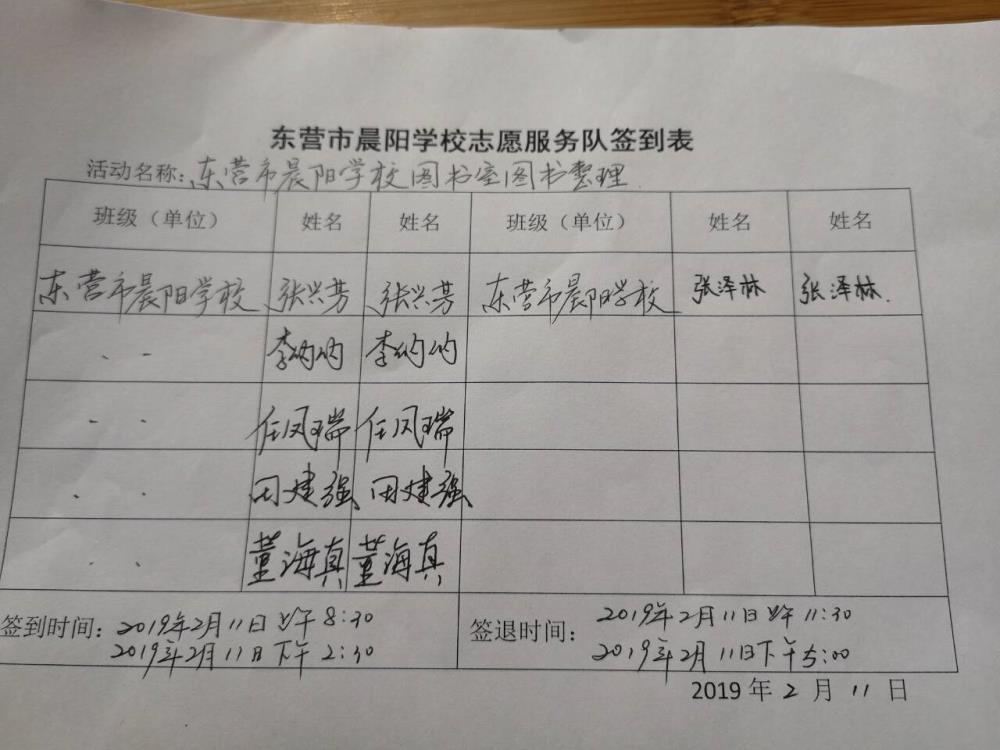 东营市晨阳学校志愿服务队签到表
活动名称:东营市晨阳学校图书室图书整理
班级（单位） 姓名 姓名 班级（单位） 姓名 姓名
东营市晨阳学校 张兴芳 张兴芳 东营市晨阳学校 张泽林 张泽林
李纳纳 李纳纳
任凤瑞 任凤瑞
田建强 田建强
董海真 董海真
签到时间: 2019年2月11日上午8:30 签退时间: 2019年2月11日上午11:30
2019年2月11日下午2:30 2019年2月11日下午5:00
2019年2月11日